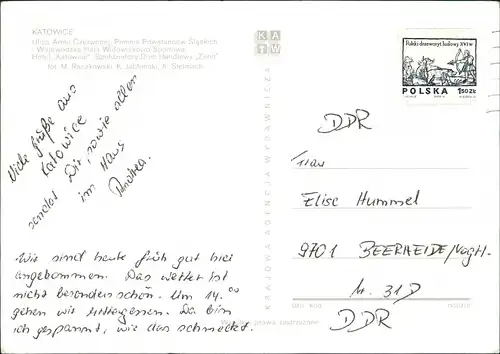 KATOWICE
Ulica Armii Czerwonej, Pomnik Powstańców Śląskich
i Wojewódzka Hala Widowiskowo-Sportowa
Hotel „Katowice", Spółdzielczy Dom Handlowy „Zenit"
fot. M. Raczkowski, K. Jabłoński, A. Stelmach
KA
TW
Polski drzeworyt ludowy XVI w.
POLSKA 1,50 ZŁ
Viele Grüße aus
Katowice
sendet Dir, sowie allen
im Haus
Andrea.
Wir sind heute früh gut hier
angekommen. Das Wetter ist
nicht besonders schön. Um 14.00
gehen wir Mittagessen. Da bin
ich gespannt, wie das schmeckt.
KRAJOWA AGENCJA WYDAWNICZA
DDR
Frau
Elise Hummel
9701 BEERHEIDE/Vogtl.
Nr. 31D
DDR
Wszelkie prawa zastrzeżone